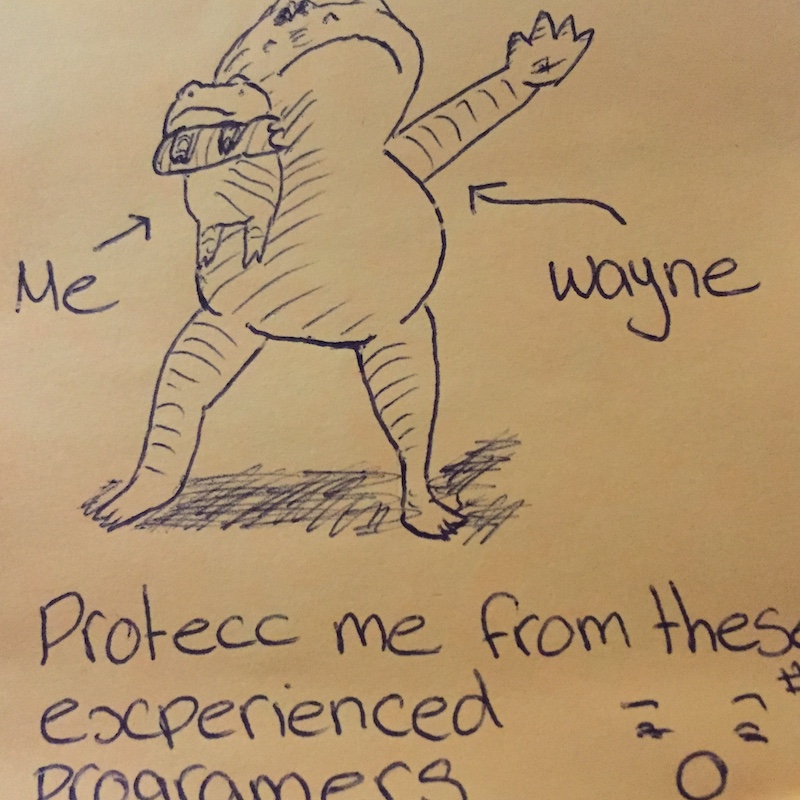 Me
wayne
Protecc me from these
excperienced
programers